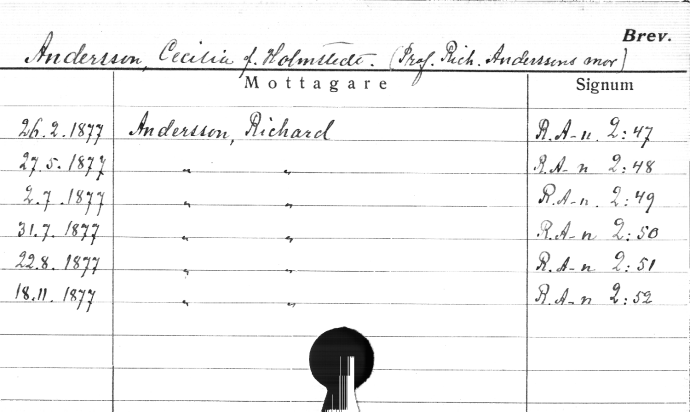 Brev.
Andersson, Cecilia f. Holmstedt. (Prof. Rich. Anderssons mor)
Mottagare Signum
26.2.1877 Andersson, Richard R.A-n. 2:47
27.5.1877 " " R.A-n 2:48
2.7.1877 " " R.A-n. 2:49
31.7.1877 " " R.A-n 2:50
22.8.1877 " " R.A-n 2:51
18.11.1877 " " R.A-n 2:52